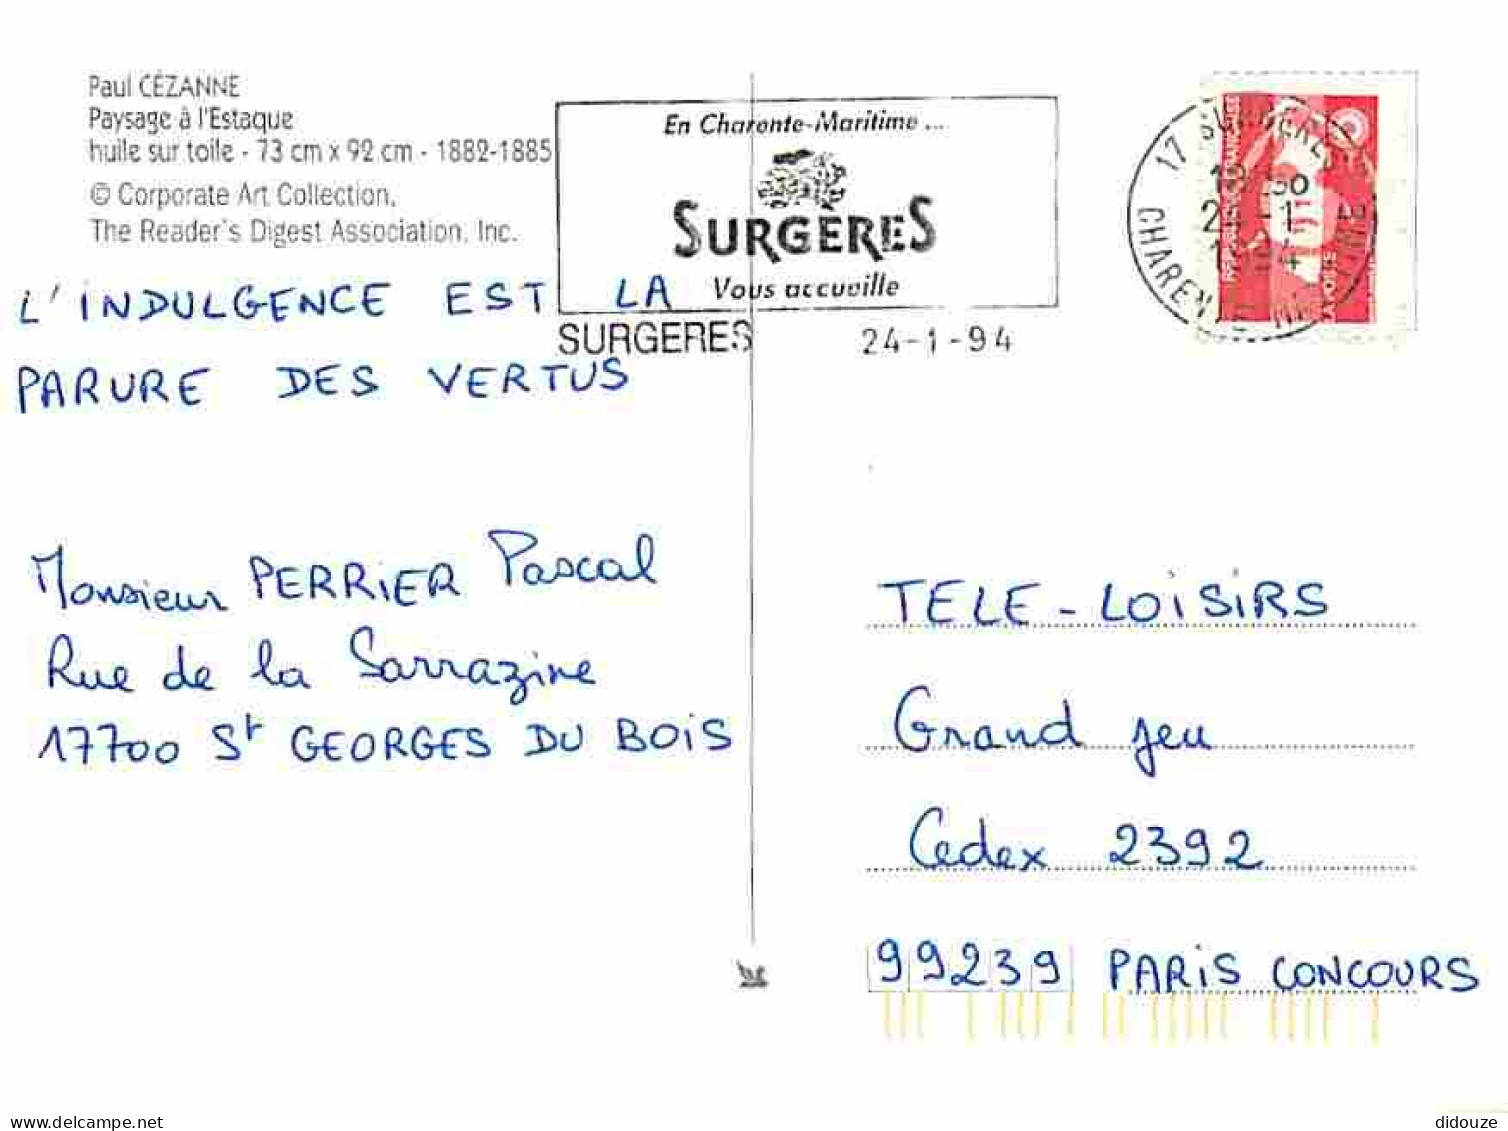 Paul CÉZANNE
Paysage à l'Estaque
huile sur toile - 73 cm x 92 cm - 1882-1885
© Corporate Art Collection,
The Reader's Digest Association, Inc.
En Charente-Maritime ...
SURGERES
Vous accueille
SURGERES 24-1-94
17 SURGERES
CHARENTE
L'INDULGENCE EST LA
PARURE DES VERTUS
Monsieur PERRIER Pascal
Rue de la Sarrazine
17700 St GEORGES DU BOIS
TELE-LOISIRS
Grand jeu
Cedex 2392
99239 PARIS CONCOURS
delcampe.net
didouze